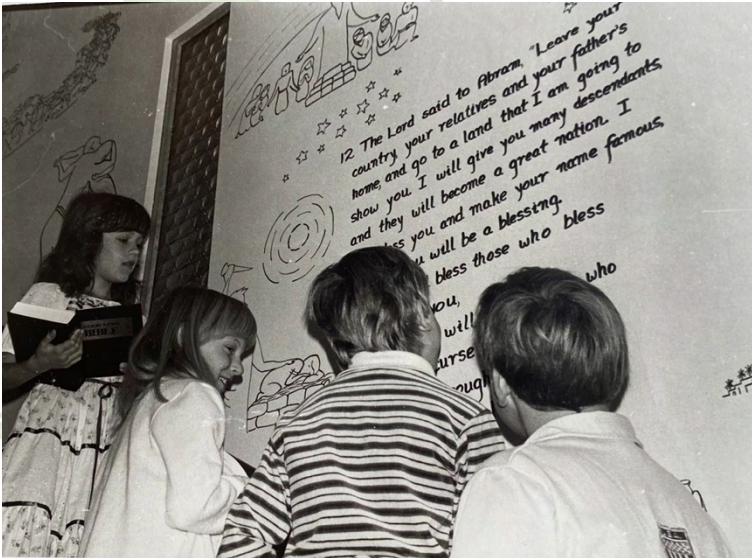 12 The Lord said to Abram, "Leave your
country, your relatives and your father's
home, and go to a land that I am going to
show you. I will give you many descendants,
and they will become a great nation. I
you and make your name famous,
will be a blessing.
bless those who bless
you,
will who
curse
BIBLE